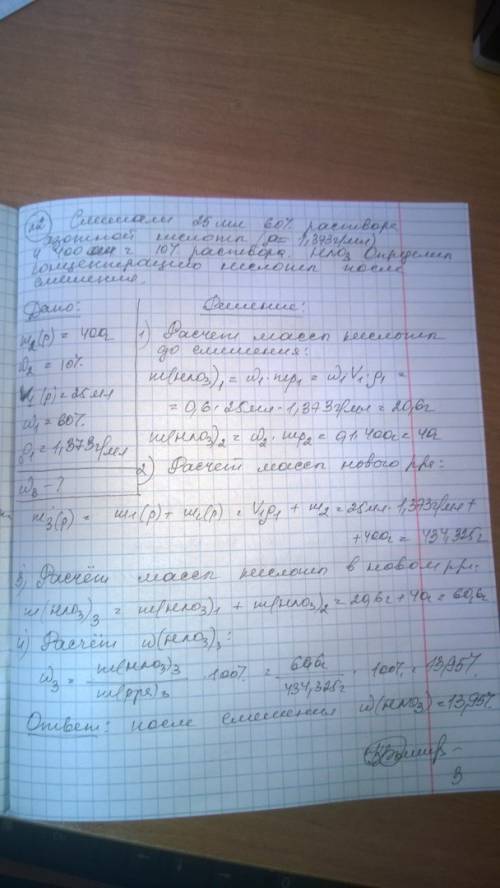 №2 Смешали 25 мл 60% раствора
азотной кислоты (ρ = 1,373г/мл)
и 400 г 10% раствора HNO3 Определить
концентрацию кислоты после
смешения.
Дано:
m2(р) = 400г
ω2 = 10%
V1(р) = 25мл
ω1 = 60%
ρ1 = 1,373г/мл
ω3 - ?
Решение:
1) Расчет массы кислоты
до смешения:
m(HNO3)1 = ω1 · mр1 = ω1 V1 · ρ1 =
= 0,6 · 25мл · 1,373г/мл = 20,6г
m(HNO3)2 = ω2 · mр2 = 0,1 · 400г = 40г
2) Расчет массы нового р-ра:
m3(р) = m1(р) + m2(р) = V1ρ1 + m2 = 25мл · 1,373г/мл +
+ 400г = 434,325г
3) Расчёт массы кислоты в новом р-ре:
m(HNO3)3 = m(HNO3)1 + m(HNO3)2 = 20,6г + 40г = 60,6г
4) Расчёт ω(HNO3)3:
ω3 = m(HNO3)3 / m(р-ра)3 · 100% = 60,6г / 434,325г · 100% = 13,95%
Ответ: после смешения ω(HNO3) = 13,95%